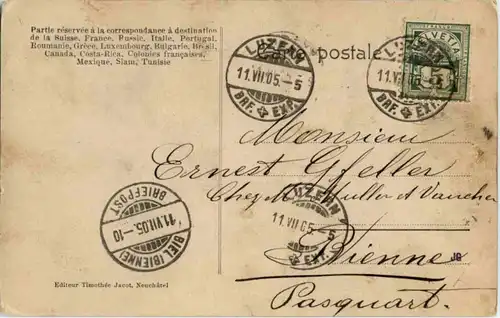 Partie réservée à la correspondance à destination
de la Suisse, France, Russie, Italie, Portugal,
Roumanie, Grèce, Luxembourg, Bulgarie, Brésil,
Canada, Costa-Rica, Colonies françaises,
Mexique, Siam, Tunisie
postale
LUZERN
11.VII.05.-5
BRF. EXP.
LUZERN
11.VII.05.-5
BRF. EXP.
HELVETIA
Monsieur
Ernest Gfeller
Chez M Muller & Vaucher
LUZERN
11.VII.05.-5
EXP.
Bienne
JG
Pasquart.
BRIEFPOST
11.VII.05.-10
BIEL (BIENNE)
Editeur Timothée Jacot, Neuchâtel